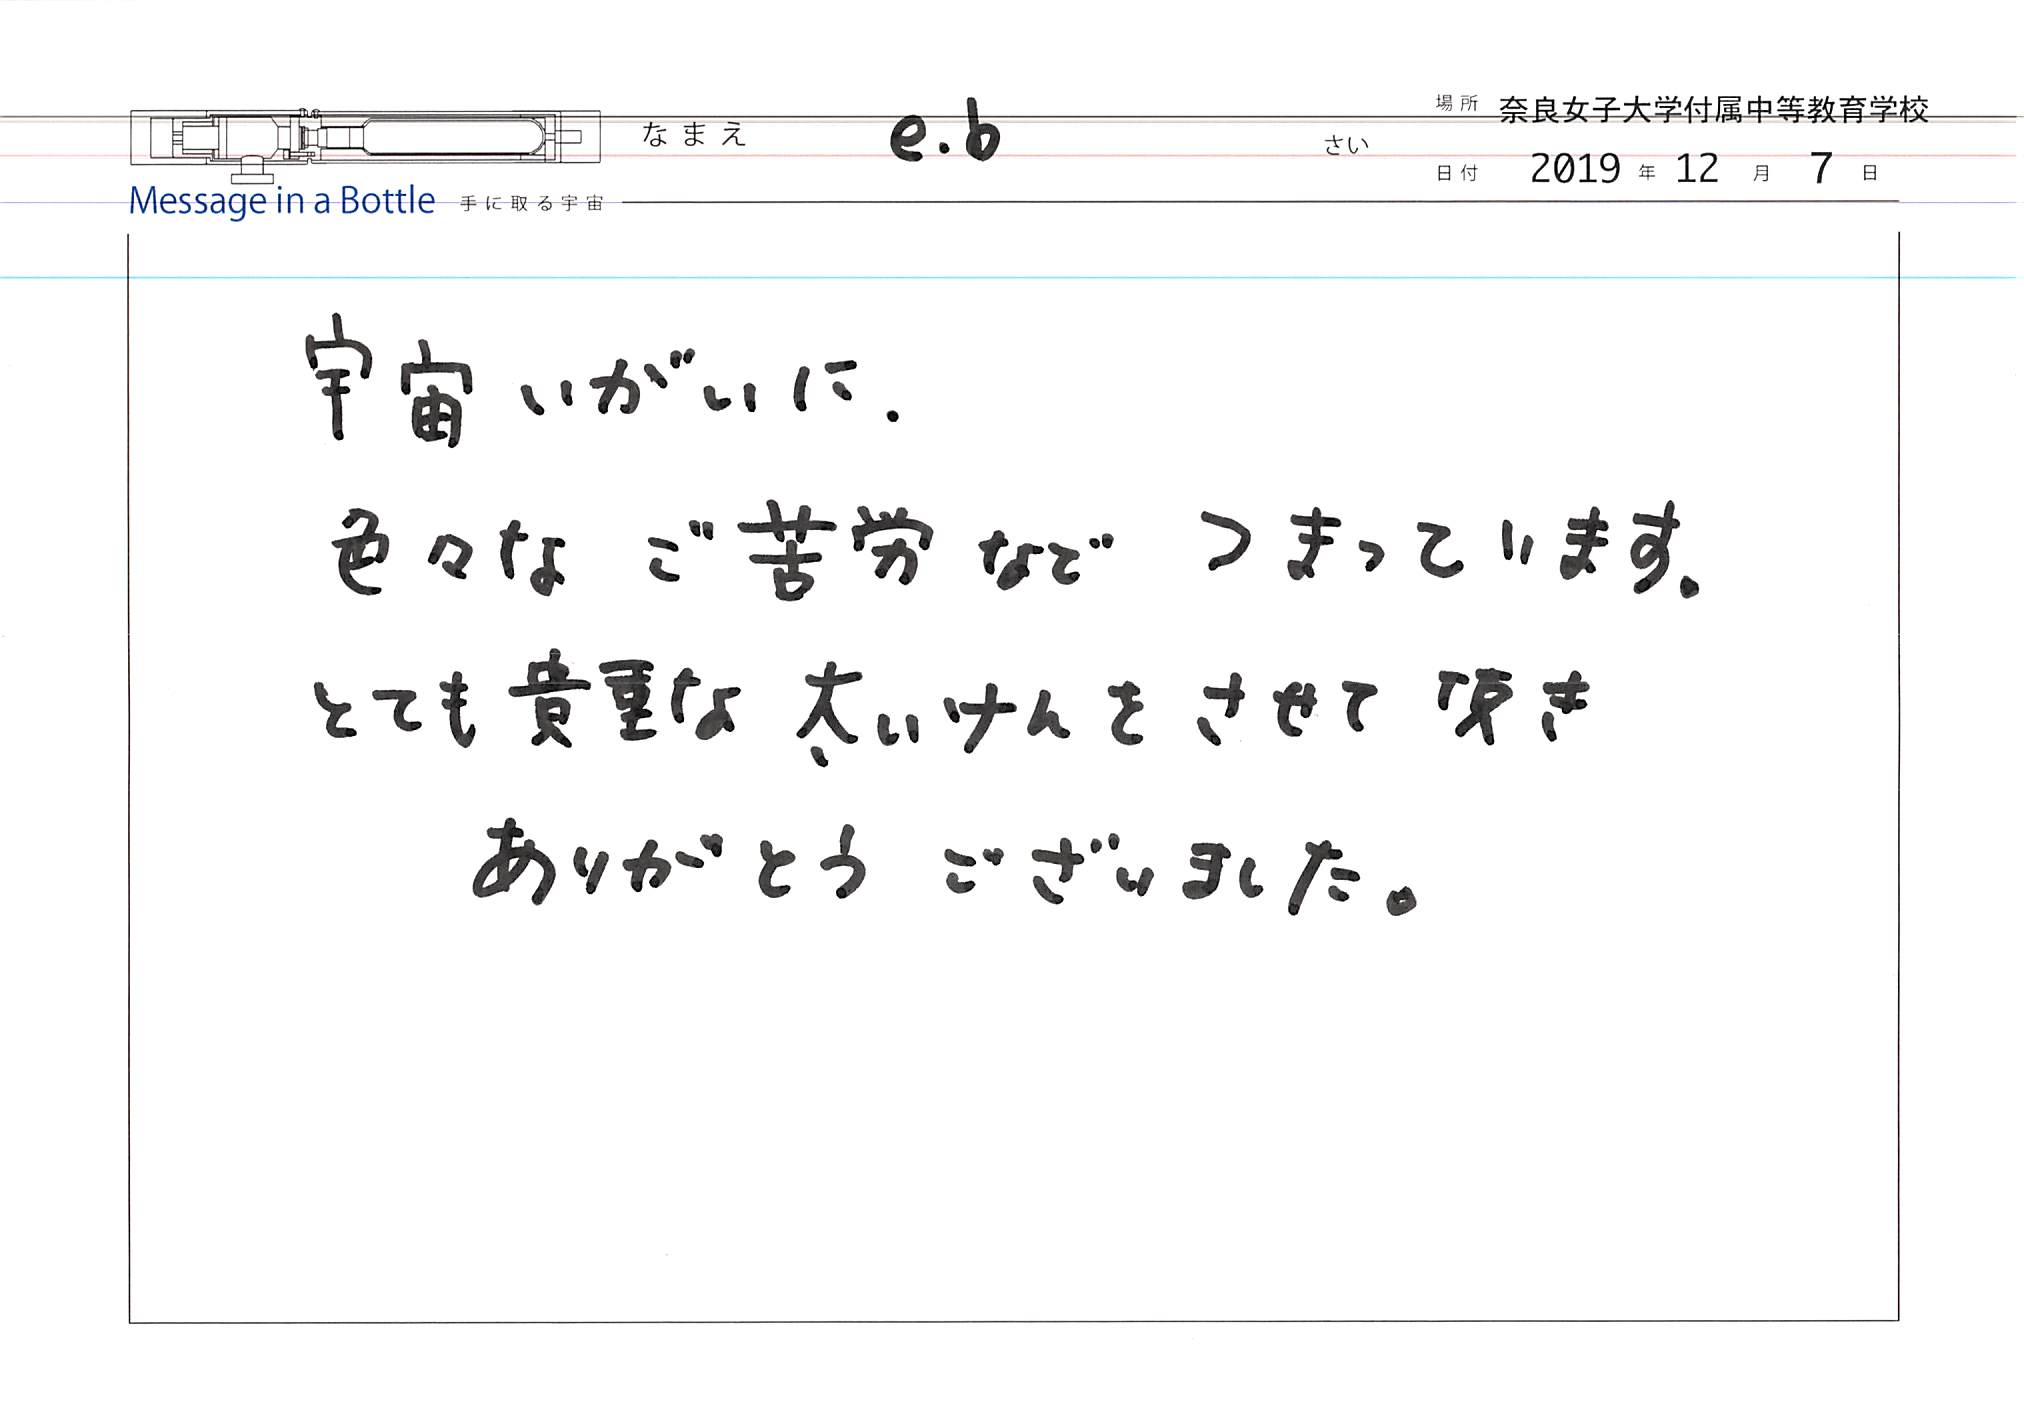 場所 奈良女子大学付属中等教育学校
なまえ e.b さい
日付 2019年 12月 7日
Message in a Bottle 手に取る宇宙
宇宙いがいに.
色々な ご苦労なで つまっています.
とても貴重な 太いけんを させて 頂き
ありがとう ございました。